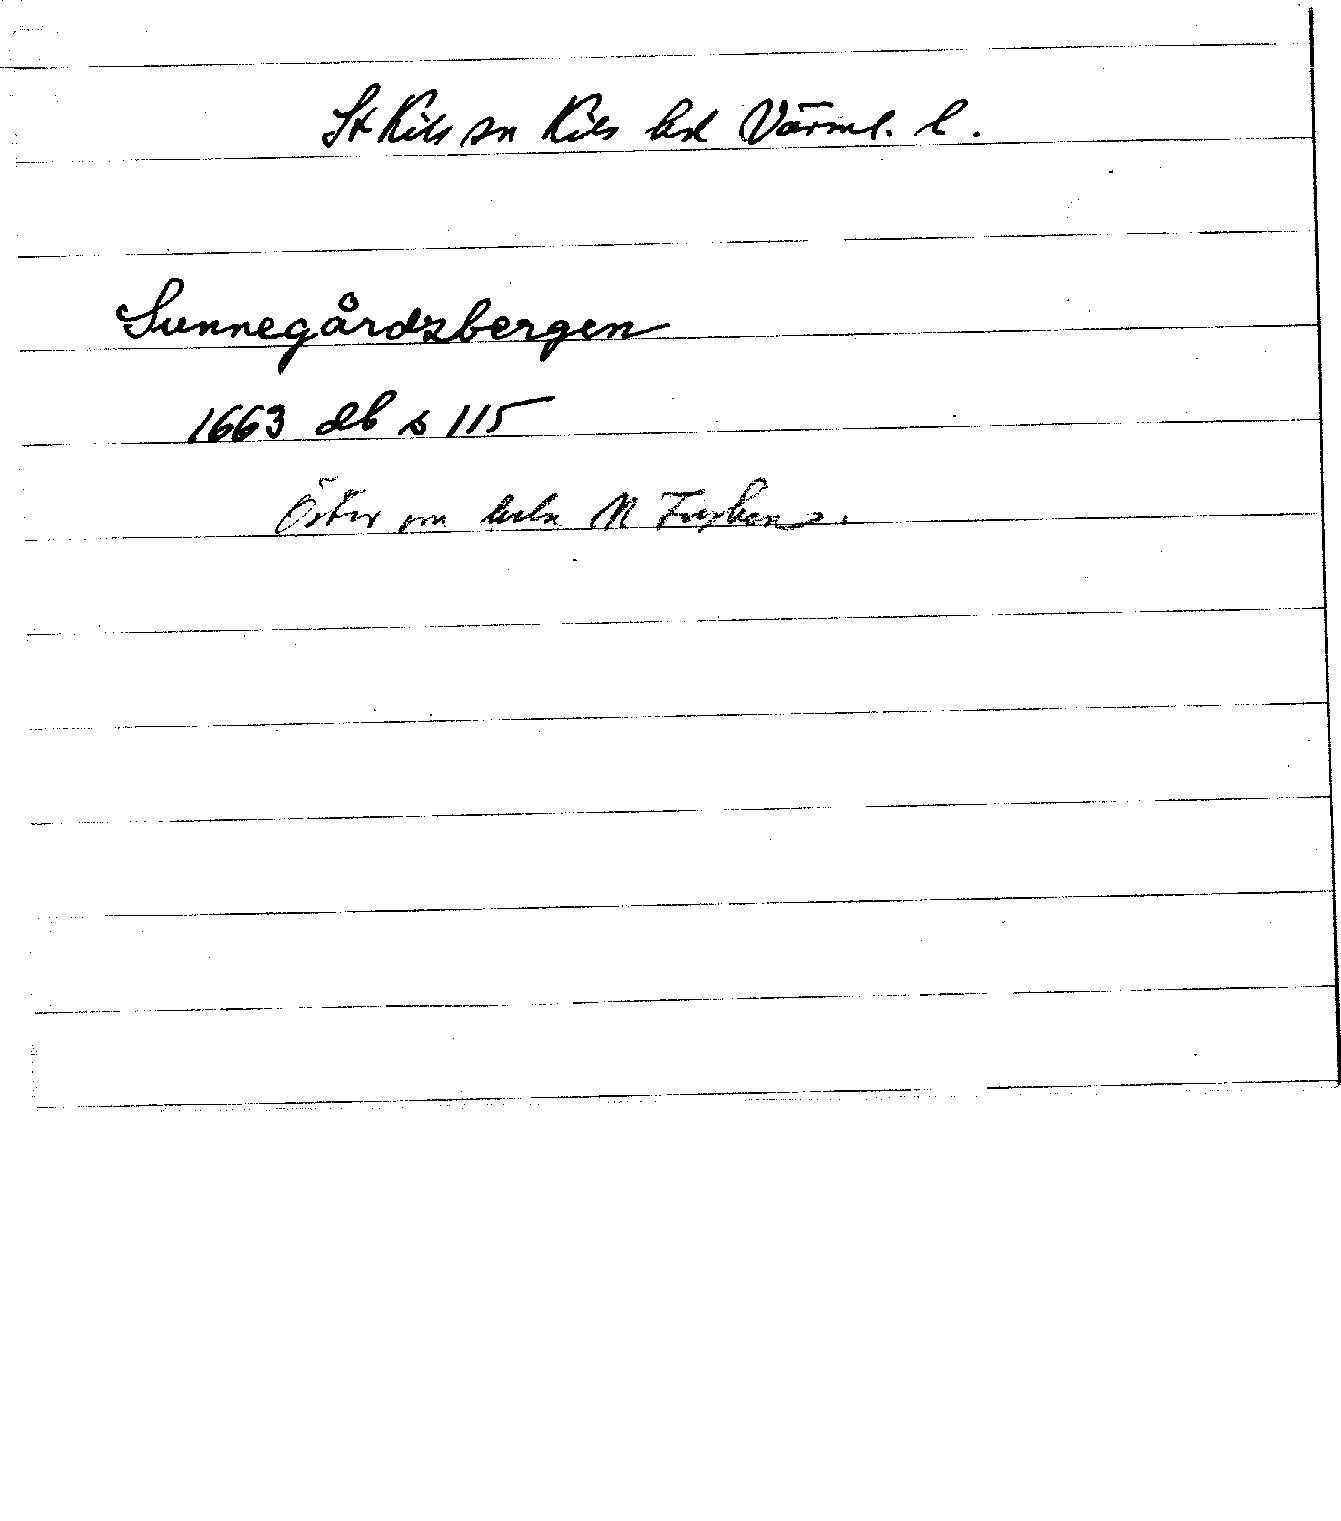 St Kils sn Kils hd Värml. l.
Sunnegårdzbergen
1663 db s 115
Öster om N Fryken.